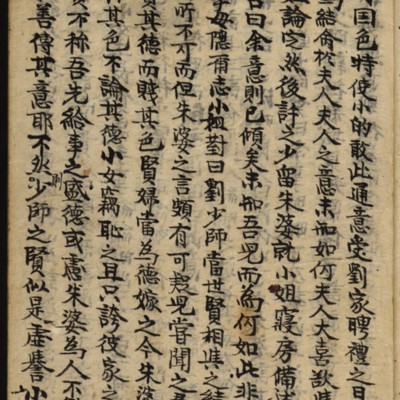 國色特使小的敢此通意受劉家聘禮之日
結侖於夫人夫人之意未知如何夫人大喜欲
論定然後計之少留朱婆就小姐寢房備述
曰余意則已傾矣未知吾兒而爲何如此非
母隱爾志小姐對曰劉少師當世賢相與之結
所不可而但朱婆之言頗有可疑兒嘗聞之君
貴其德而賤其色賢婦當爲德嫁之今朱婆
其色不論其德小女竊恥之且只誇彼家之
不称吾先給事之盛德或慮朱婆爲人不
善傳其意耶不然則少師之賢似是虛譽